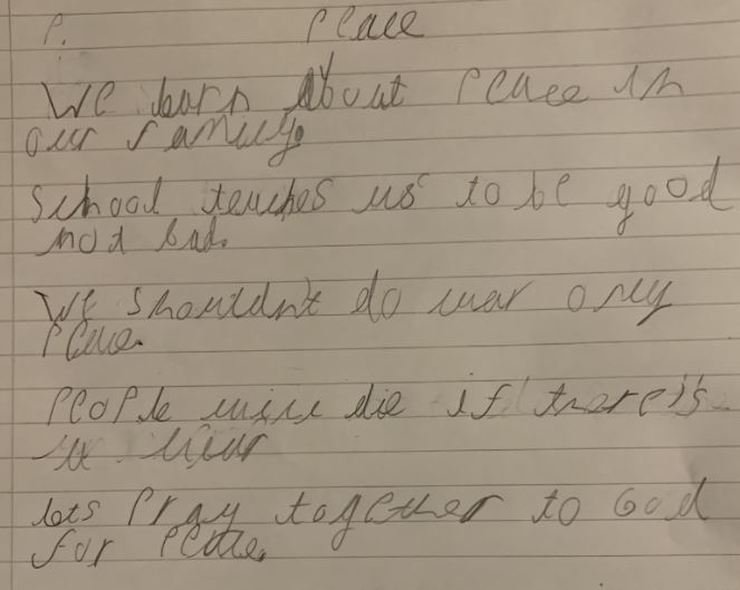 P. Peace
We learn about Peace in
our family.
School teaches us to be good
not bad.
We shouldn't do war only
Peace.
PeoPle will die if there is
a war
lets Pray together to God
for Peace.